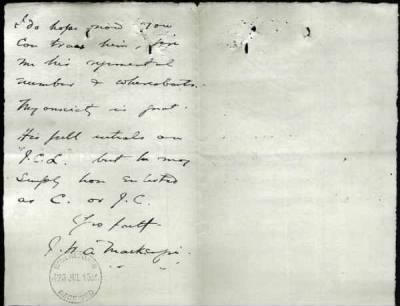 I do hope now you
can trace him, give
me his regimental
number & whereabouts.
My anxiety is great.
His full initials are
J.C.L. but he may
simply have enlisted
as C. or J.C.
Yrs faith
J. H. A. Mackenzie
RECEIVED